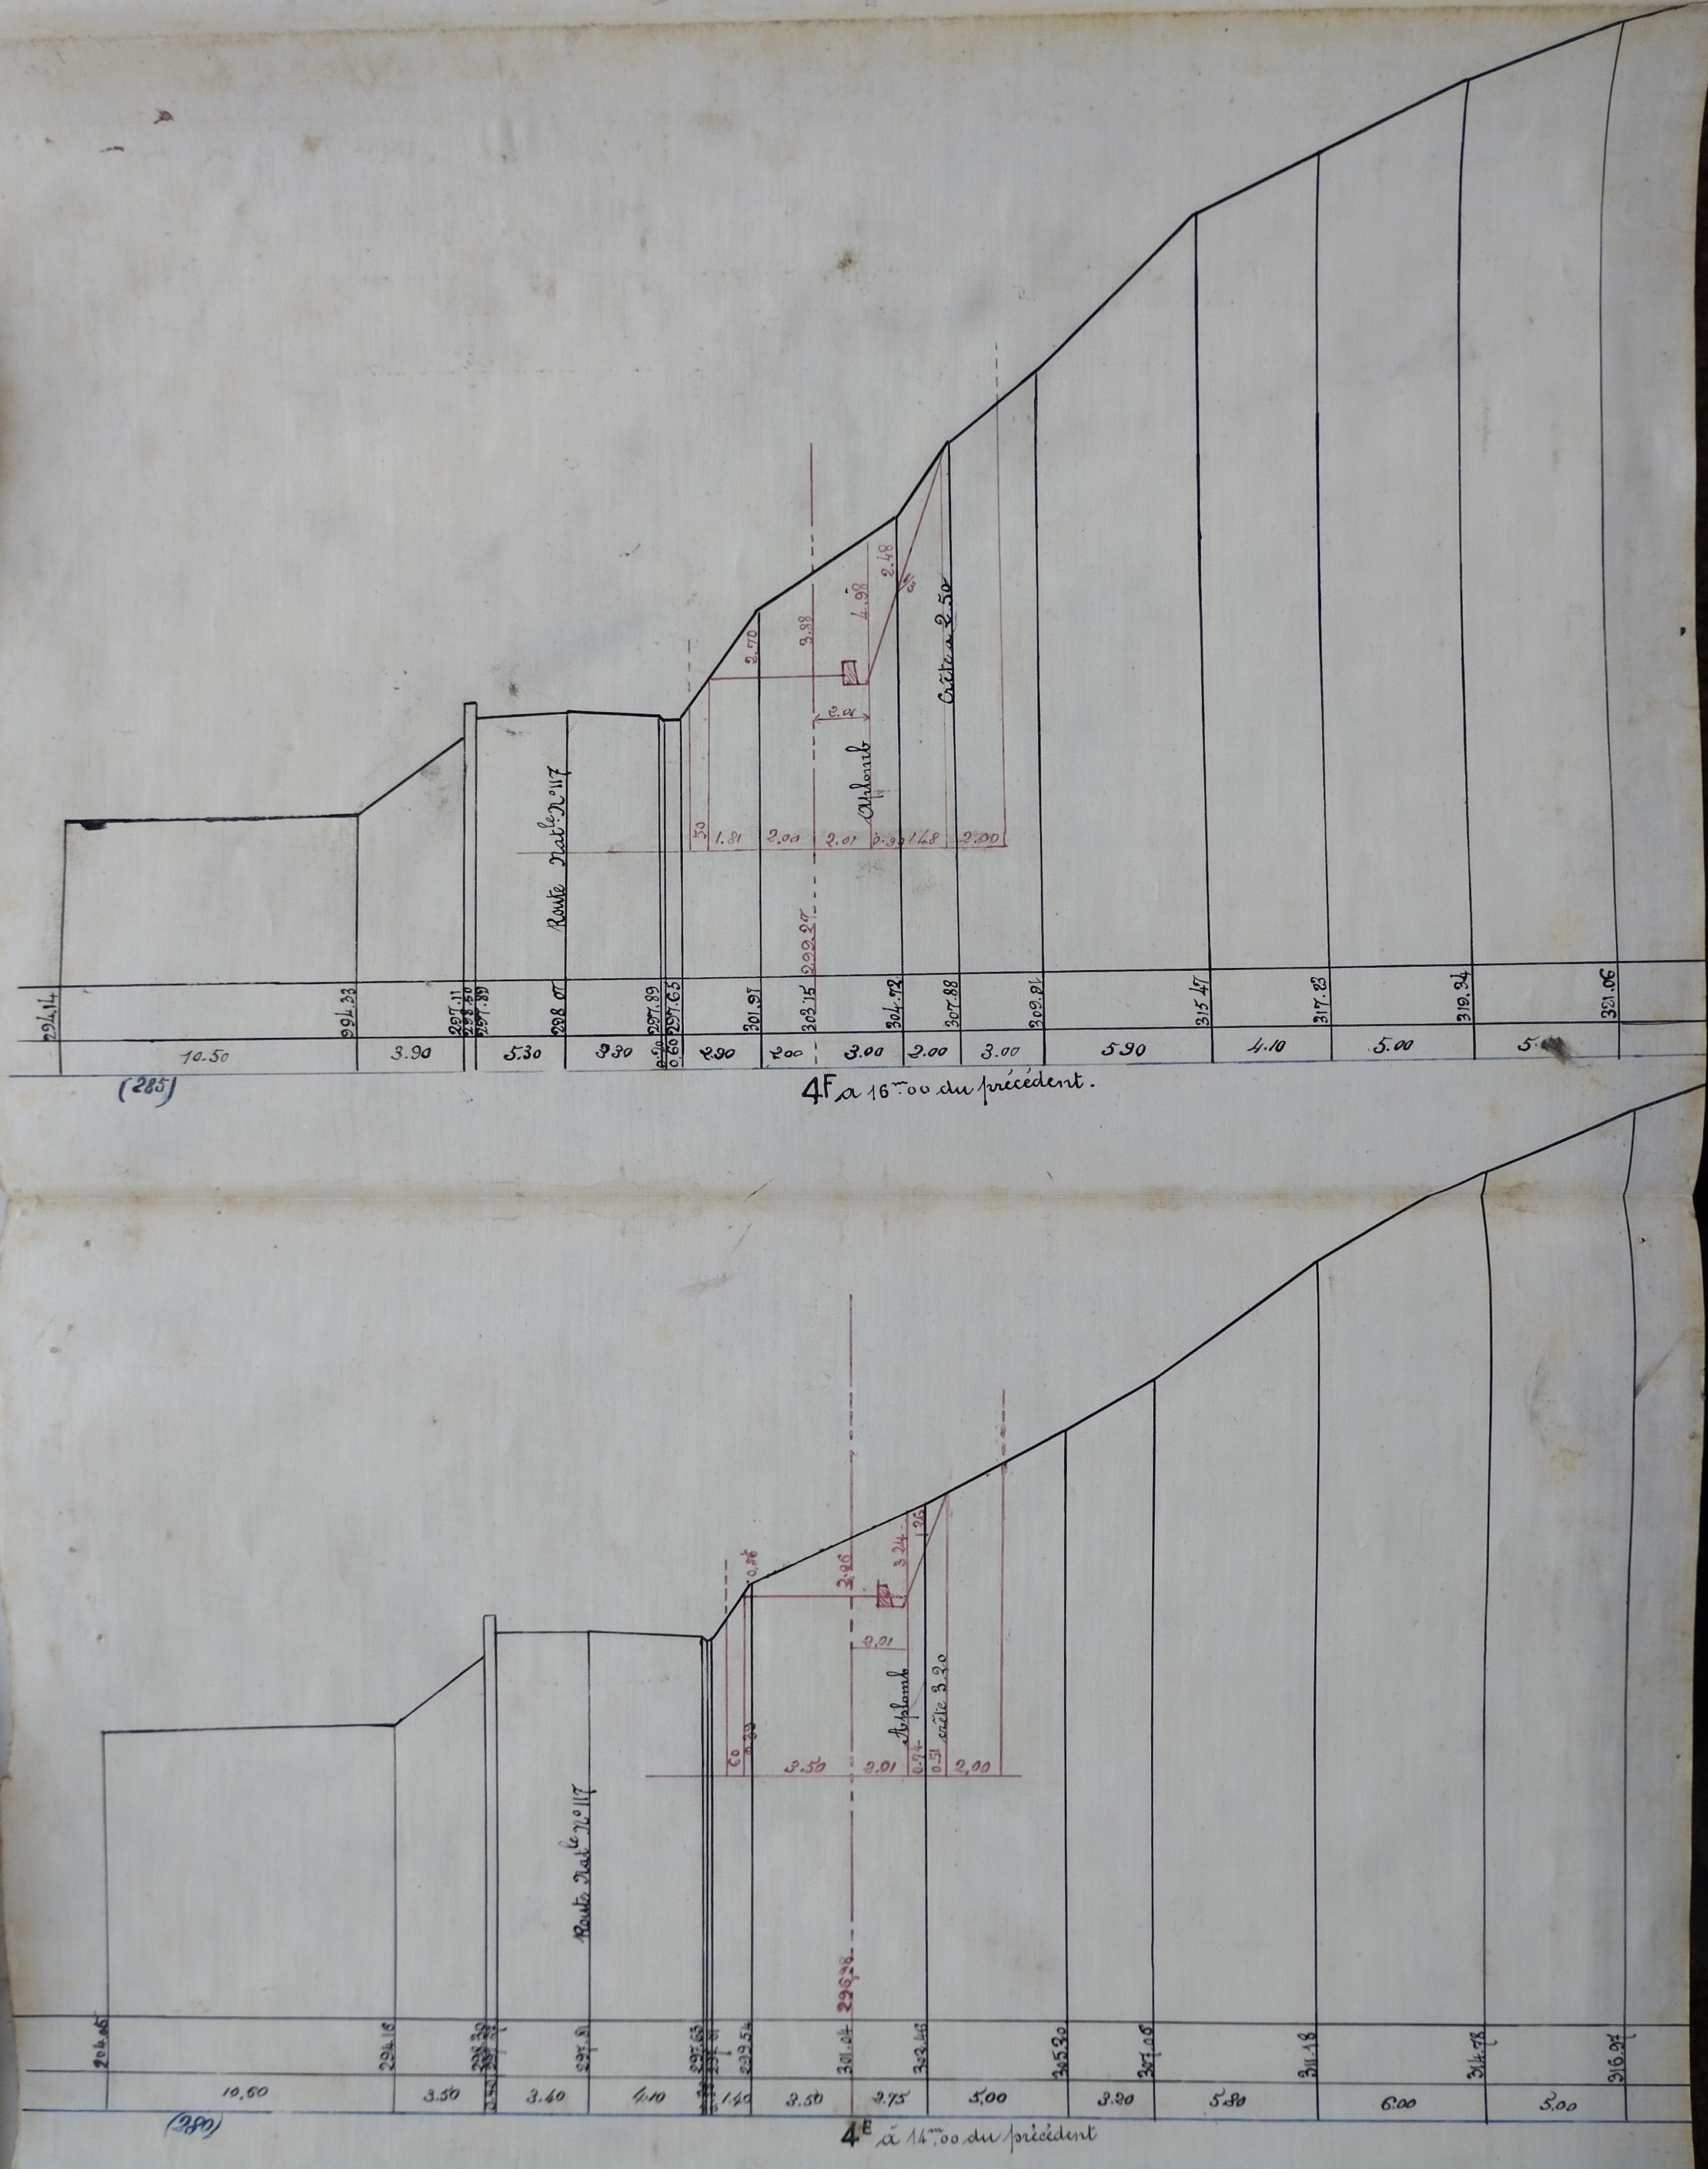 2.48
4.98
3.88
2.70
Crête a 2.50
2.01
Aplomb
Route Natle No 117
50 1.81 2.00 2.01 0.99 1.48 2.00
299.27
294.14 294.33 297.11 298.50 297.89 298.07 297.89 297.65 301.91 303.15 304.72 307.88 309.81 315.47 317.23 319.34 321.06
10.50 3.90 5.30 3.30 0.20 0.60 2.90 2.00 3.00 2.00 3.00 5.90 4.10 5.00
(285)
4F a 16m00 du précédent.
1.26
3.24
0.56
2.01
Aplomb
crête 3.20
60 0.39 3.50 2.01 0.74 0.51 2,00
Route Natle No 117
294.16 297.81 297.63 299.54 301.04 302.46 305.30 307.06 311.18 314.78 316.97
10,60 3.50 3.40 4.10 1.40 3.50 2.75 5,00 3.20 5.80 6.00 5.00
4E à 14m,00 du précédent